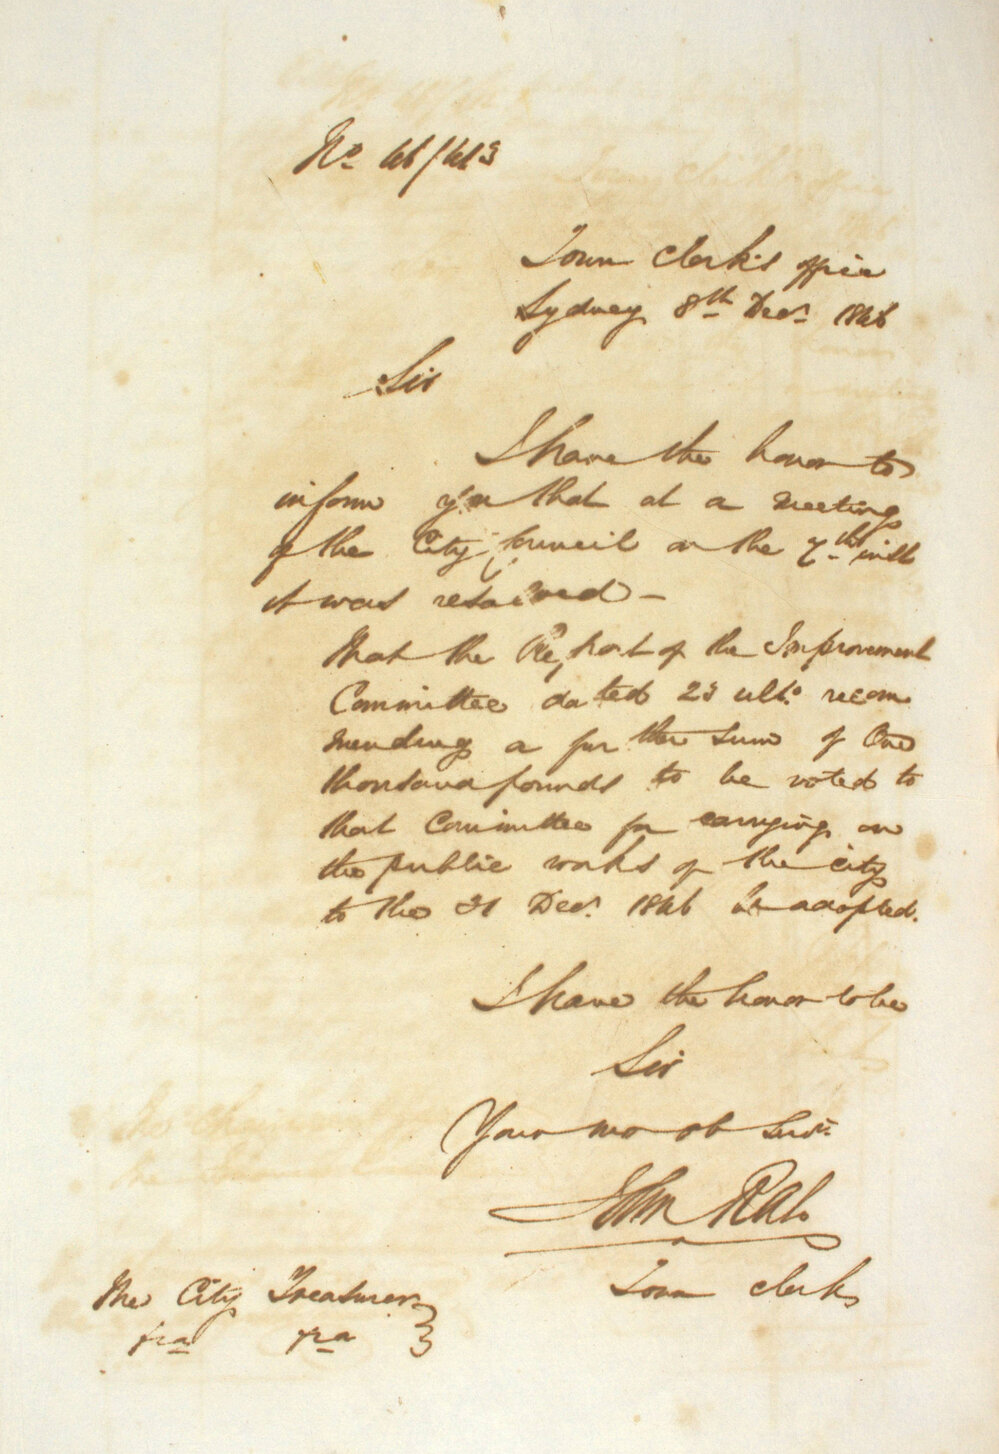 No 46/413
Town Clerk's office
Sydney 8th Decr. 1846
Sir
I have the honor to
inform you that at a meeting
of the City Council on the 7th inst
it was resolved -
That the Report of the Improvement
Committee dated 23 ulto. recom
mending a further sum of One
thousand pounds to be voted to
that Committee for carrying on
the public works of the city
to the 31 Decr. 1846 be adopted.
I have the honor to be
Sir
Your mo ob Servt.
John Rae
Town Clerk
The City Treasurer